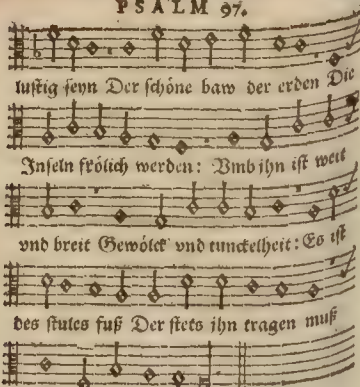 PSALM 97.
lustig seyn Der schöne baw der erden Die
Inseln frölich werden: Vmb ihn ist weit
vnd breit Gewölck vnd tunckelheit: Es ist
des stules fuß Der stets ihn tragen muß